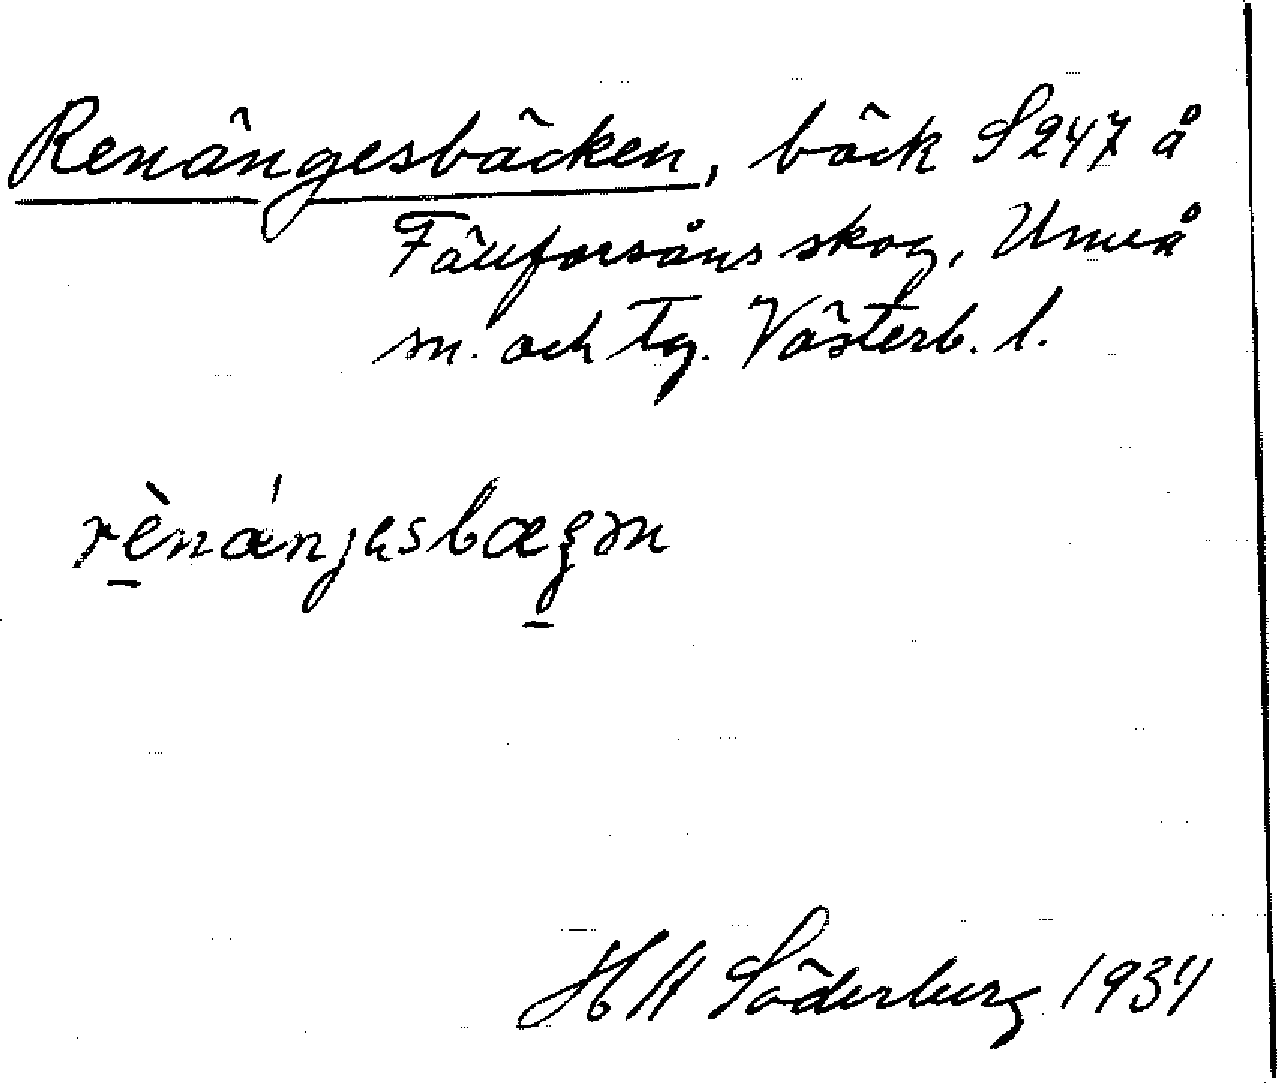 Renängesbäcken, bäck S247 å
Fällforsåns skog, Umeå
sn. och tg. Västerb. l.
rènǽnjesbæʒm
H H Söderberg 1934